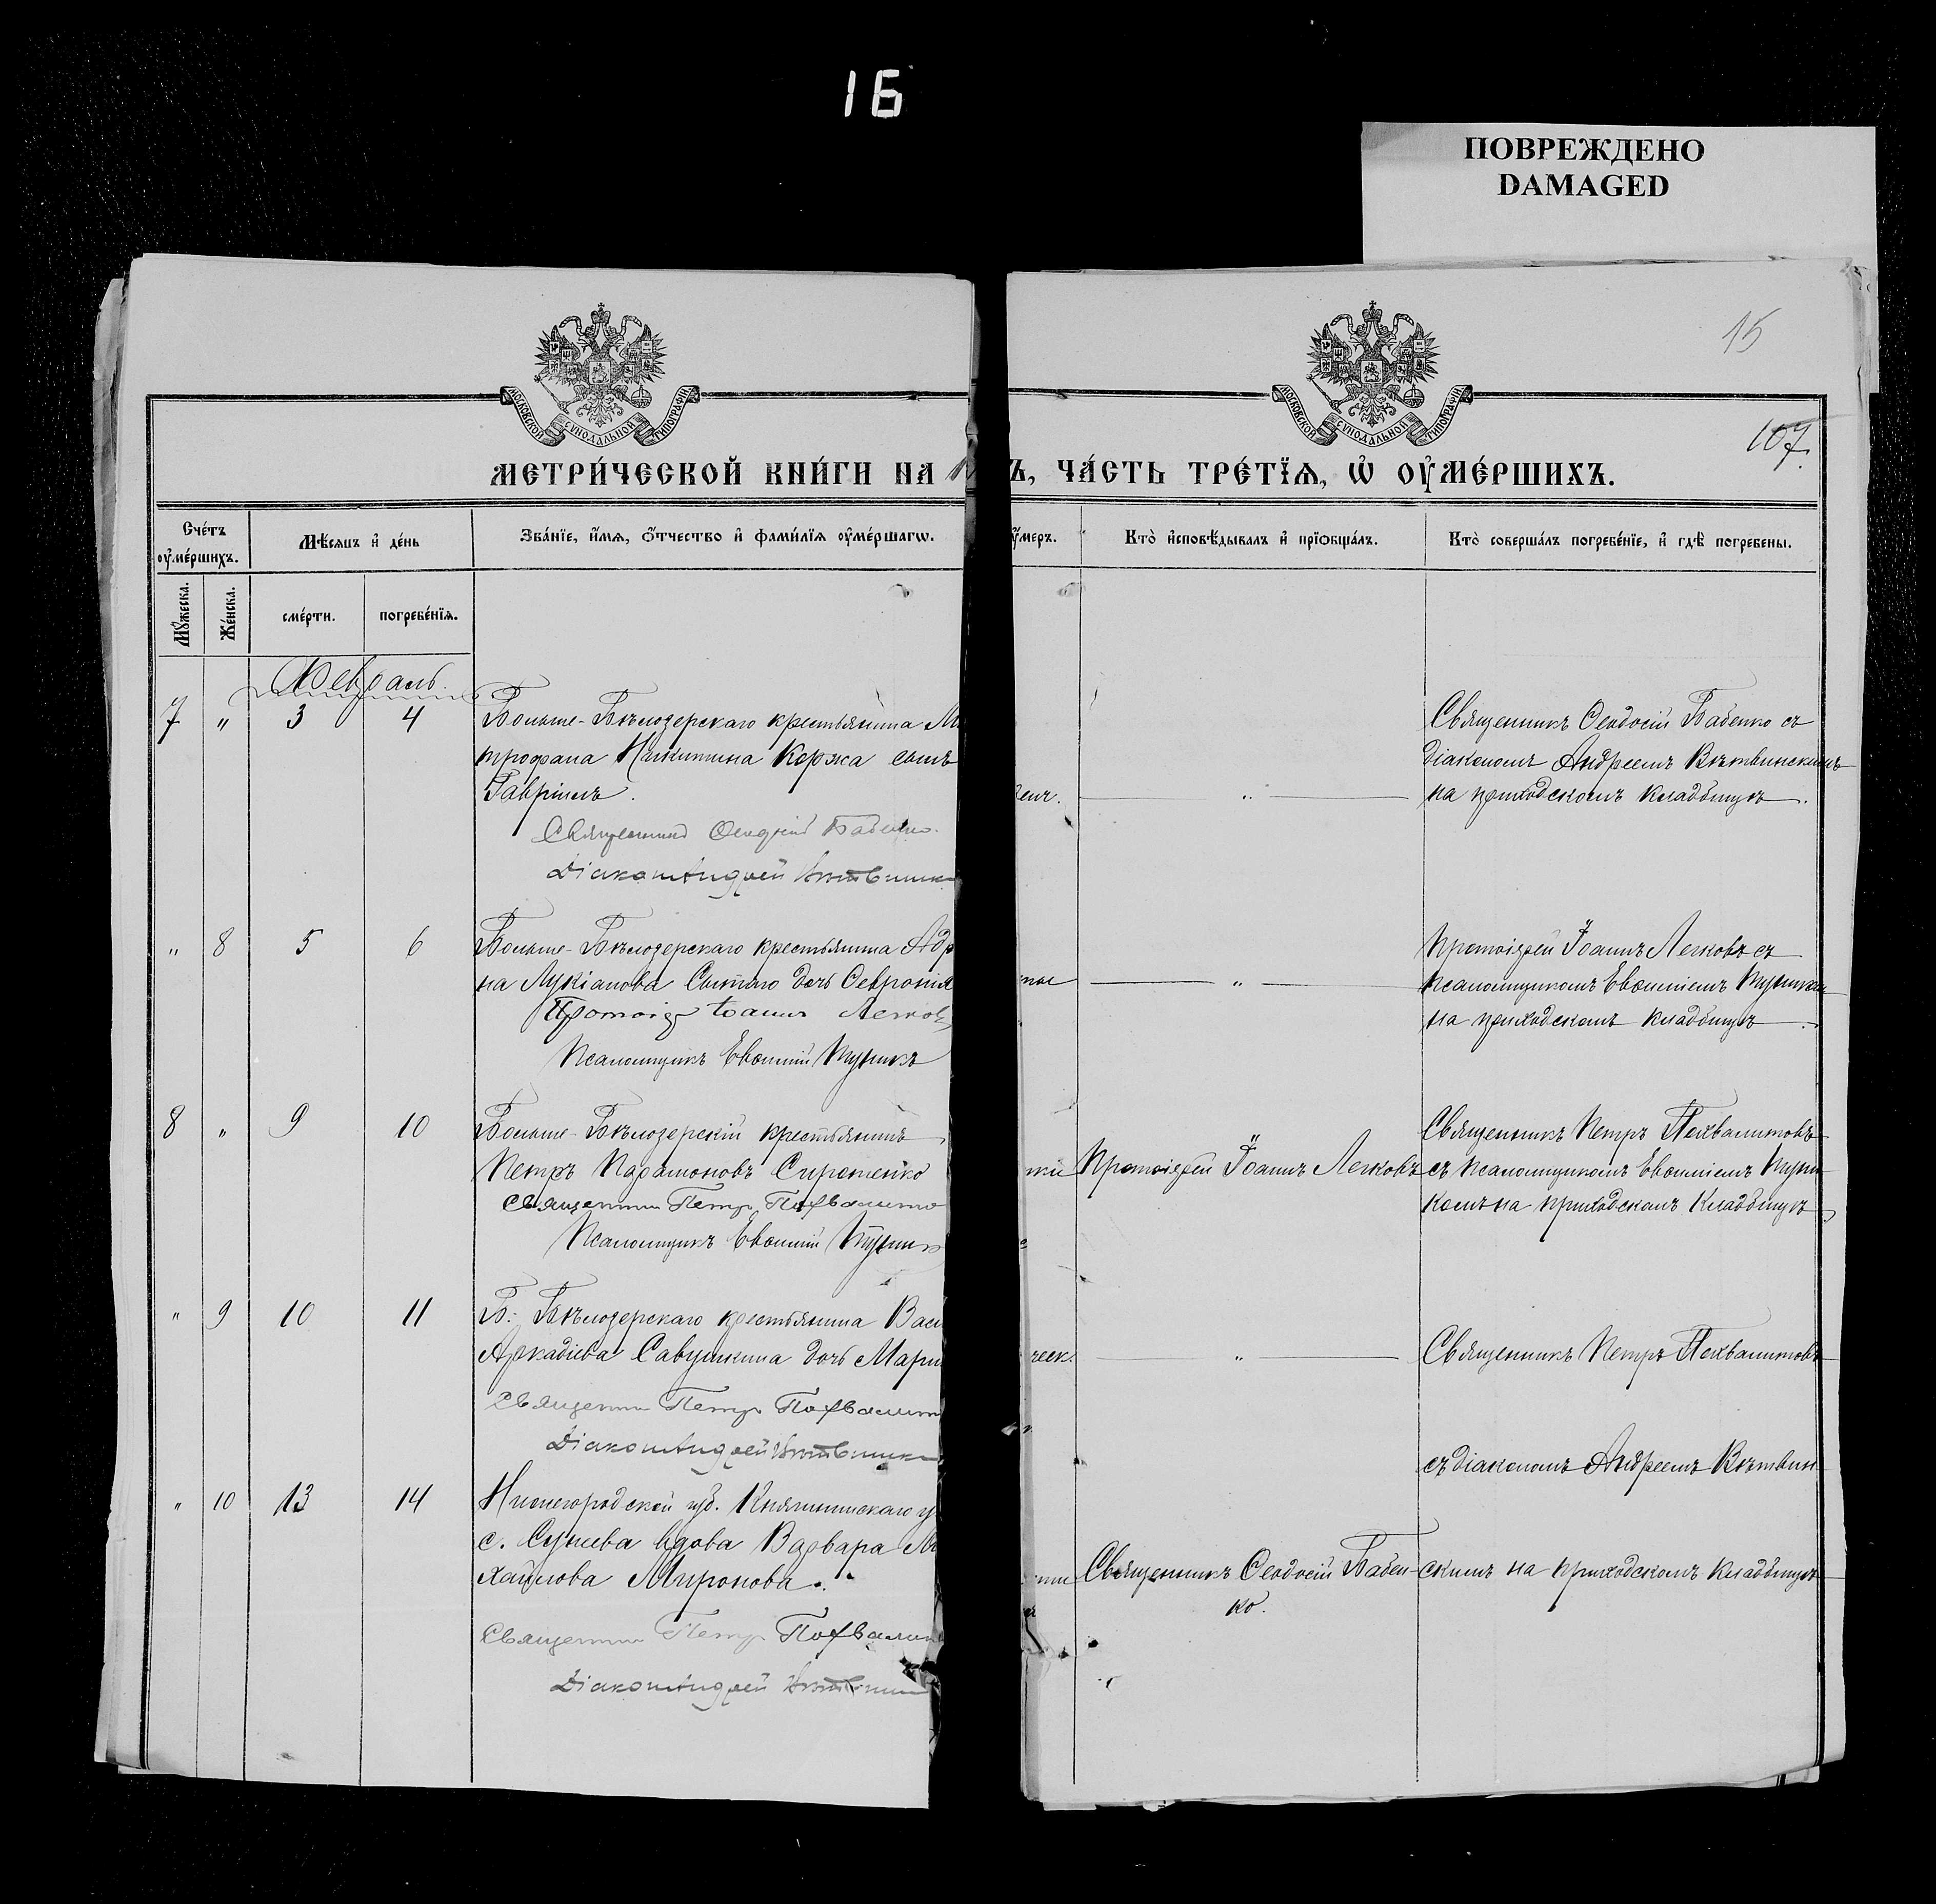 16
ПОВРЕЖДЕНО
DAMAGED
15
107.
МОСКОВСКОЙ СѴНОДАЛЬНОЙ ТИПОГРАФІИ
МОСКОВСКОЙ СѴНОДАЛЬНОЙ ТИПОГРАФІИ
МЕТРИ́ЧЕСКОЙ КНИ́ГИ НА
Ъ, ЧА́СТЬ ТРЕ́ТЇѦ, Ѡ҆ ОУ҆МЕ́РШИХЪ.
Сче́тъ оу҆ме́ршихъ.
Мѣ́сѧцъ и҆ де́нь
Зва́нїе, и҆́мѧ, ѻ҆́тчество и҆ фами́лїѧ оу҆ме́ршагѡ.
оу҆́меръ.
Кто̀ и҆сповѣ́дывалъ и҆ прїѡбща́лъ.
Кто̀ соверша́лъ погребе́нїе, и҆ гдѣ̀ погребены.
Мꙋ́жеска.
Же́нска.
сме́рти.
погребе́нїѧ.
Февраль.
7 " 3 4
Больше-Бѣлозерскаго крестьянина Ми
трофана Никитина Коржа сынъ
Гавріилъ.
Священникъ Ѳеодосій Бабенко.
Діаконъ Андрей Вѣтвински
"
Священникъ Ѳеодосій Бабенко съ
діакономъ Андреемъ Вѣтвинскимъ
на приходскомъ кладбищѣ.
" 8 5 6
Больше-Бѣлозерскаго крестьянина Адр
на Лукіанова Сытаго дочь Севронія
Протоіер Іоаннъ Легков
Псаломщикъ Евѳимій
"
Протоіерей Іоаннъ Легковъ съ
псаломщикомъ Евѳиміемъ
на приходскомъ кладбищѣ.
8 " 9 10
Больше-Бѣлозерскій крестьянинъ
Петръ Парамоновъ Сиротенко
Священник Петр Похвалито
Псаломщикъ Евѳимій
Протоіерей Іоаннъ Легковъ
Священникъ Петръ Похвалитовъ
съ псаломщикомъ Евѳиміемъ
комъ на приходскомъ кладбищѣ
" 9 10 11
Б: Бѣлозерскаго крестьянина Васи
Аркадіева Савушкина дочь Мари
Священник Петр Похвалит
Діаконъ Андрей Вѣтвински
ческ.
"
Священникъ Петръ Похвалитовъ
съ діакономъ Андреемъ Вѣтвин
" 10 13 14
Нижегородской губ. Княгининскаго у
с. вдова Варвара Ми
хайлова Миронова.
Священник Петр Похвалит
Діаконъ Андрей Вѣтвин
Священникъ Ѳеодосій Бабен-
ко.
скимъ на приходскомъ кладбищѣ